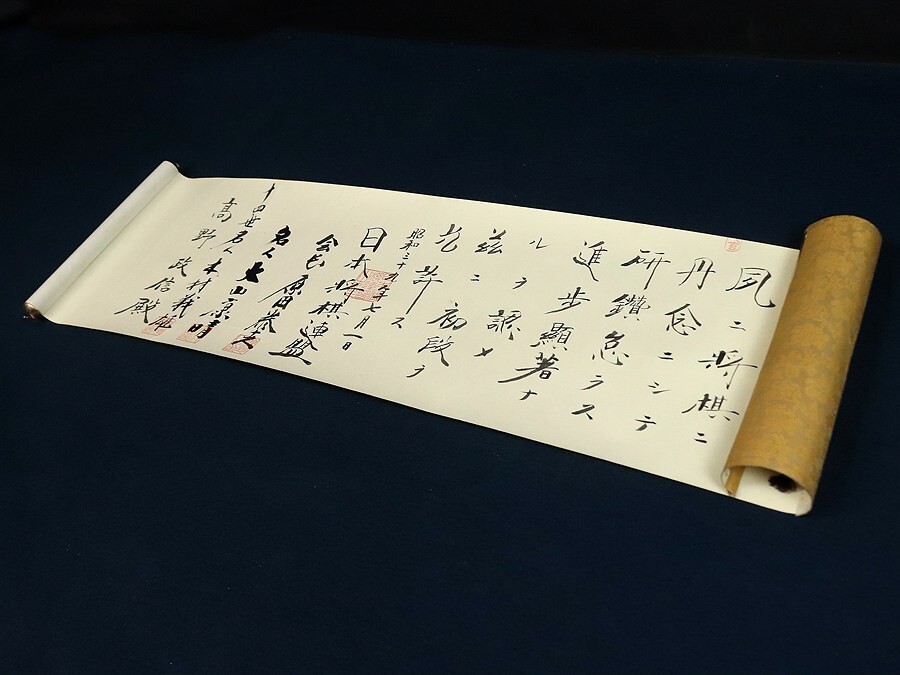 夙ニ將棋ニ
丹念ニシテ
研鑽怠ラス
進歩顯著ナ
ルヲ認メ
茲ニ初段ヲ
允許ス
昭和三十九年七月一日
日本將棋連盟
会長 原田泰夫
名人 大山康晴
十四世名人 木村義雄
高野政信殿